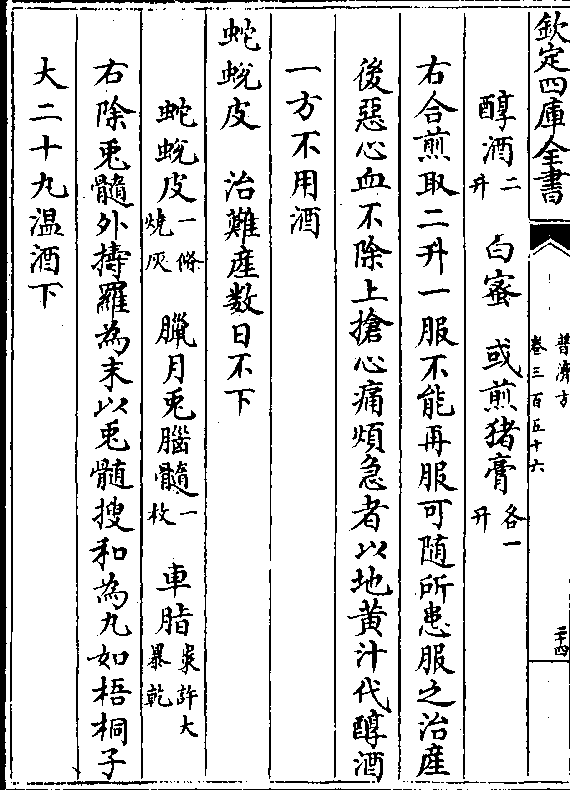 欽定四庫全書
普濟方
卷三百五十六
二十四
醇酒二升 白蜜 或煎猪膏各一升
右合煎取二升一服不能再服可随所患服之治産
後惡心血不除上搶心痛煩急者以地黄汁代醇酒
一方不用酒
蛇蛻皮 治難産数日不下
蛇蛻皮一條燒灰 臘月兎腦髓一枚 車脂棗許大暴乾
右除兎髓外擣羅為末以兎髄搜和為丸如梧桐子
大二十九温酒下